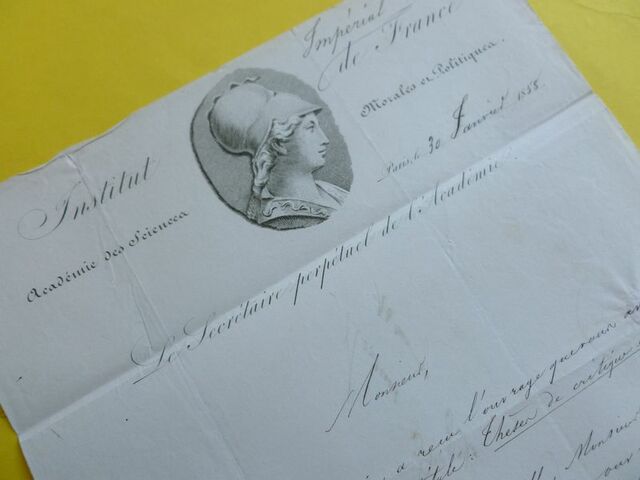 Institut Impérial
de France
Académie des Sciences Morales et Politiques.
Paris, le 30 Janvier 1858.
Le Secrétaire perpétuel de l'Académie
Monsieur,
a reçu l'ouvrage que vous
Thèses de critique
Monsieur